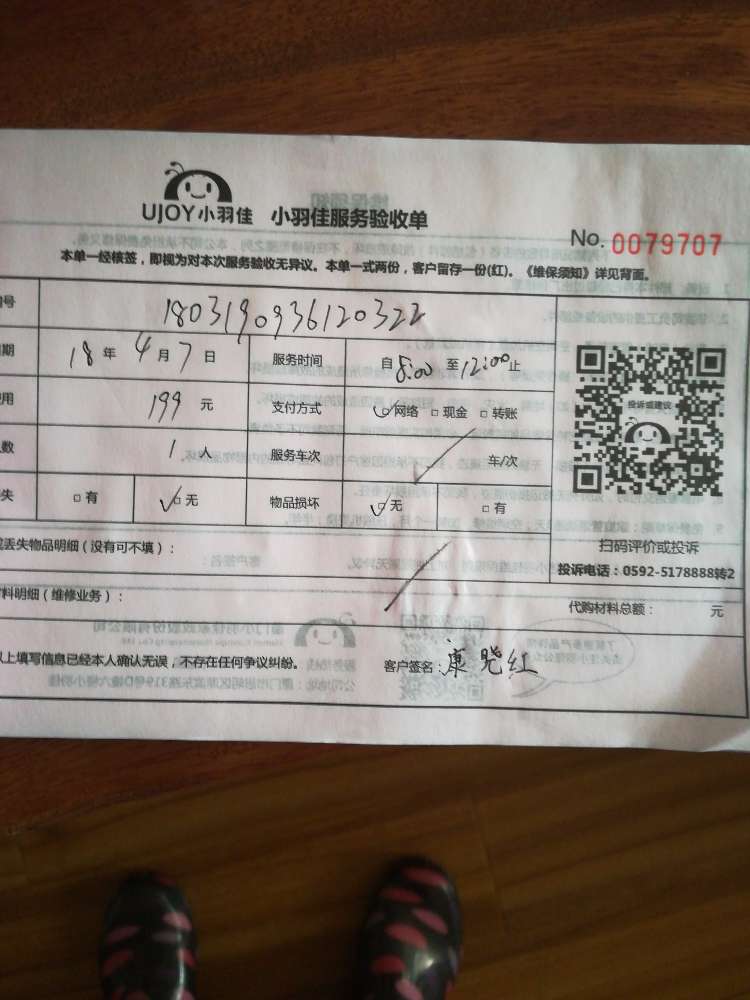 UJOY小羽佳 小羽佳服务验收单
No. 0079707
本单一经核签，即视为对本次服务验收无异议。本单一式两份，客户留存一份(红)。《维保须知》详见背面。
号 1803190936120322
期 18年4月7日 服务时间 自8:00至12:00止
用 199元 支付方式 网络 现金 转账
数 1人 服务车次 车/次
失 有 无 物品损坏 无 有
投诉或建议
扫码评价或投诉
投诉电话：0592-5178888转2
丢失物品明细（没有可不填）：
料明细（维修业务）： 代购材料总额： 元
上填写信息已经本人确认无误，不存在任何争议纠纷。 客户签名：康晓红